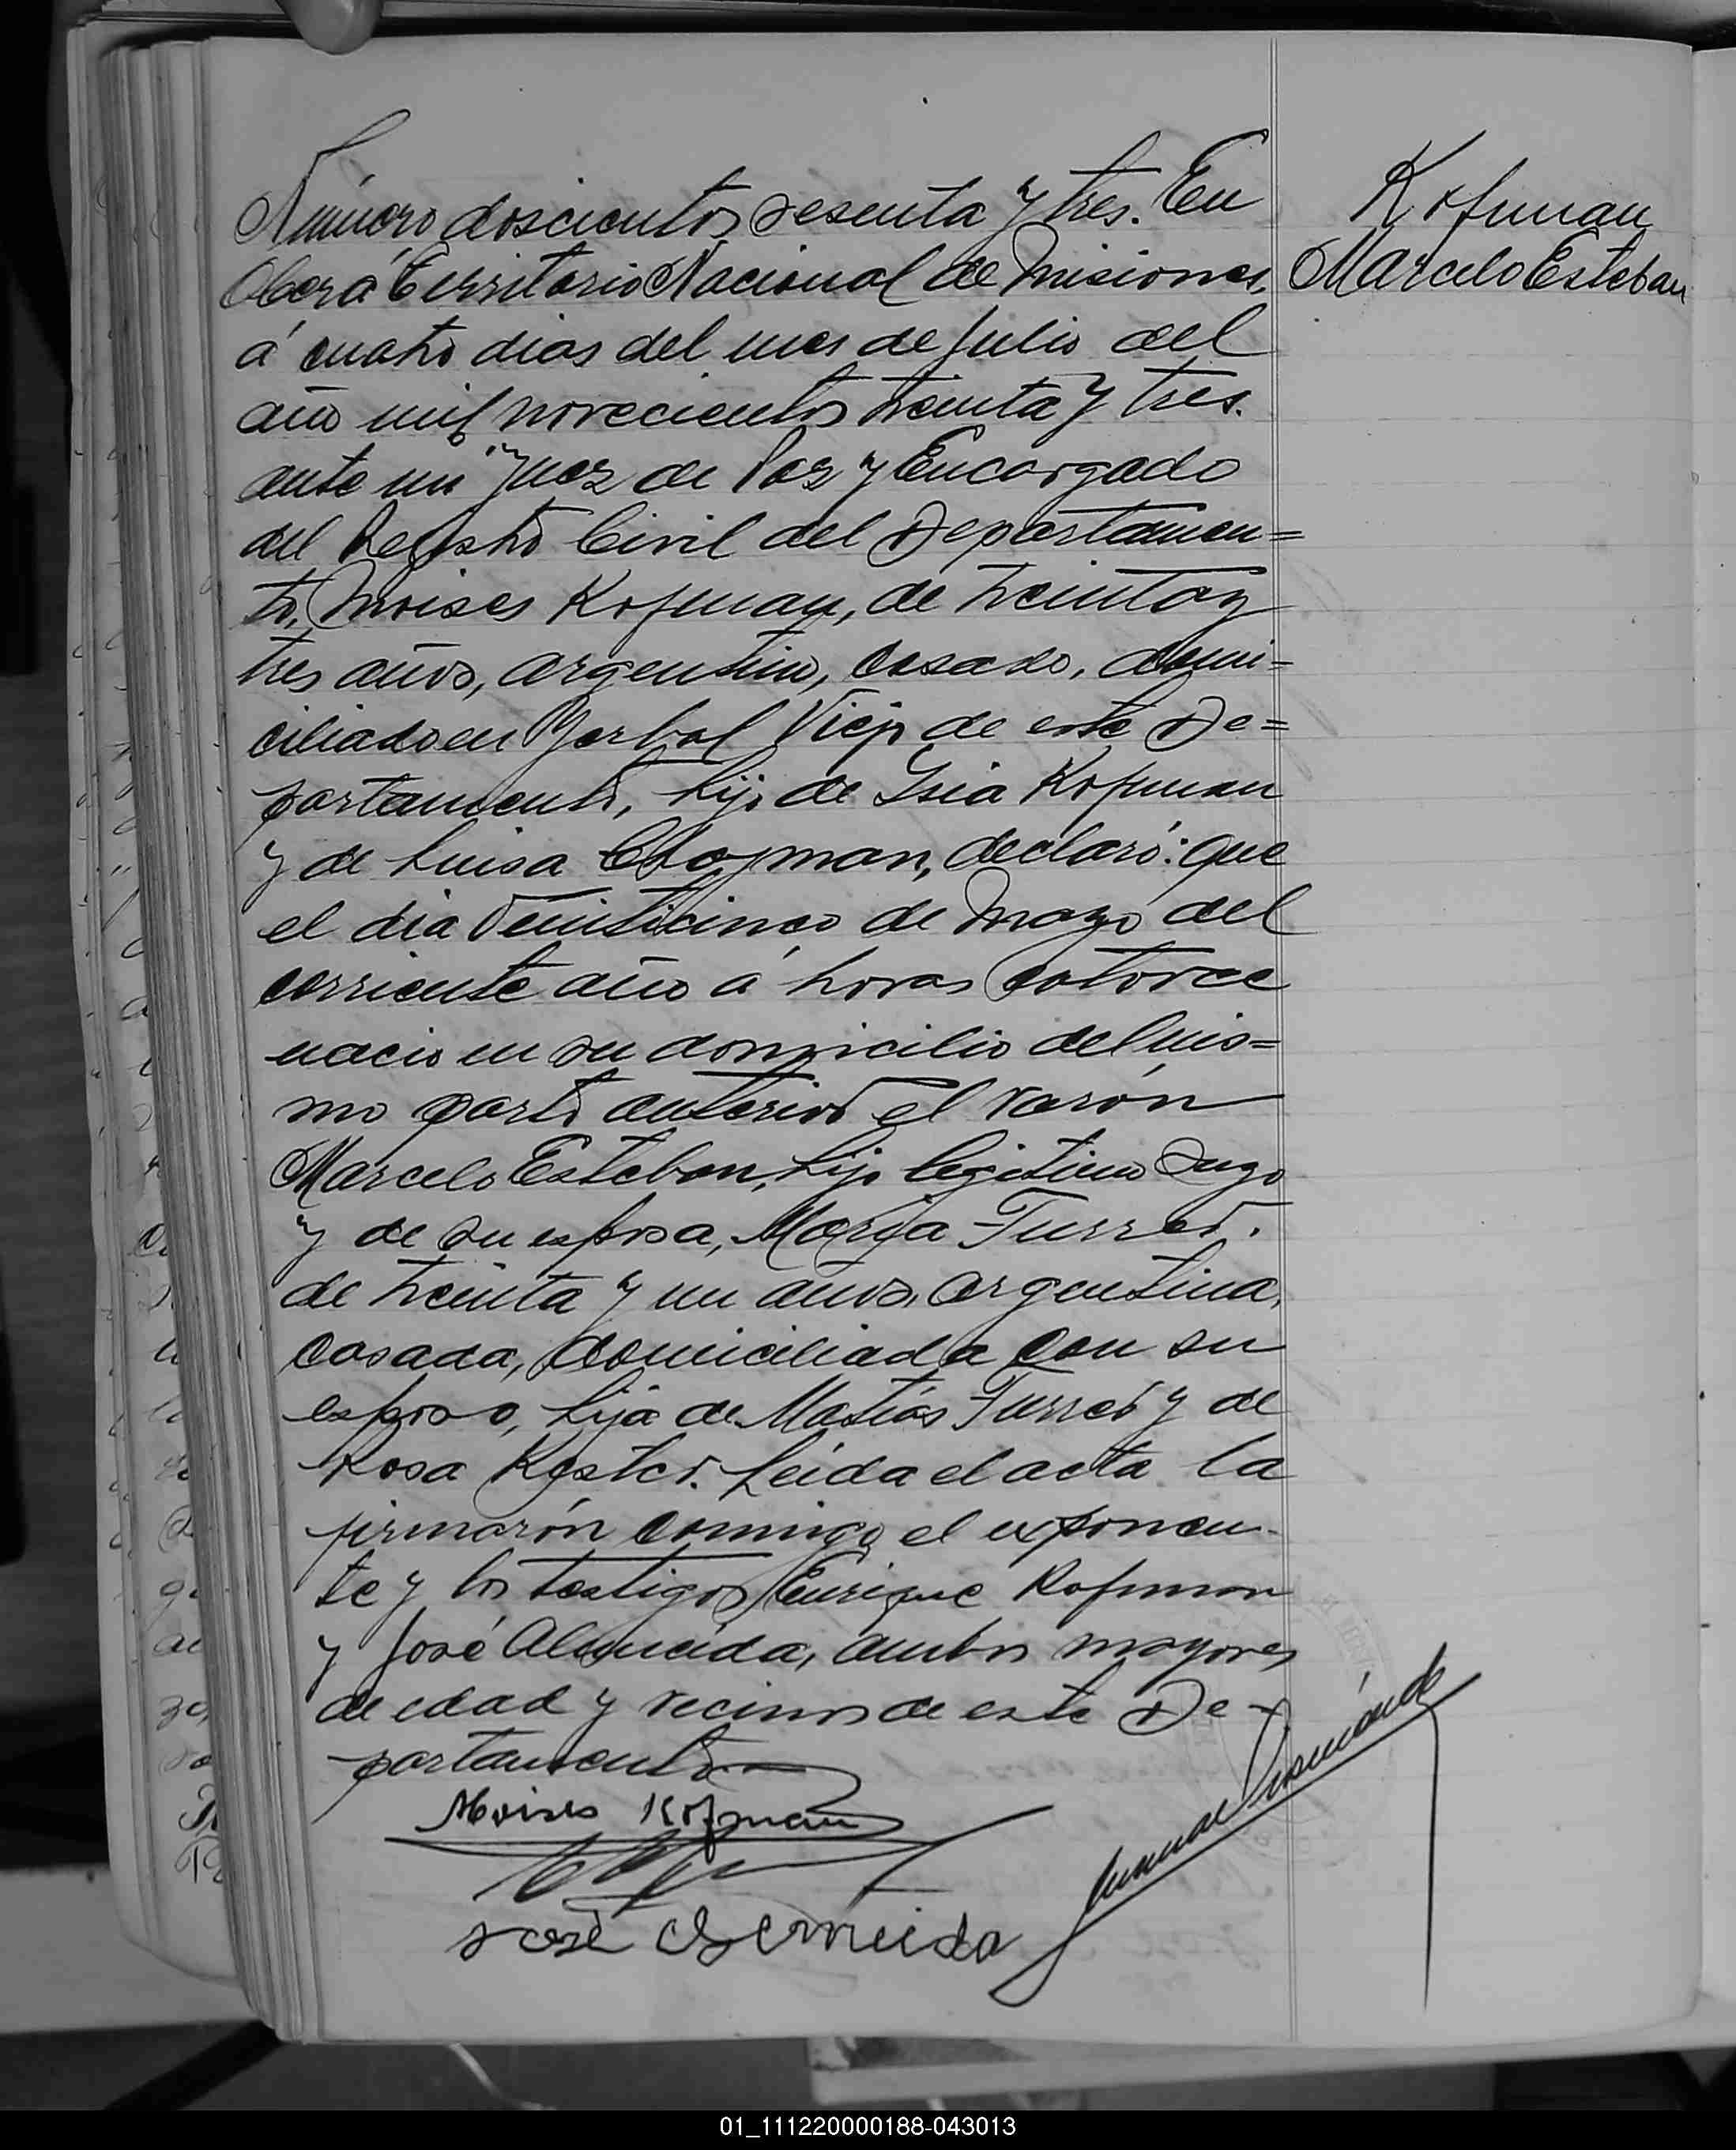 Número doscientos sesenta y tres. En
Oberá Territorio Nacional de Misiones,
á cuatro dias del mes de Julio del
año mil novecientos treinta y tres.
ante mi Juez de Paz y Encargado
del Registro Civil del Departamen=
to, Moises Kofman, de treinta y
tres años, argentino, casado, domi=
ciliado en Yerbal Viejo de este De=
partamento, hijo de Isia Kofman
y de Luisa declaró: que
el dia Veinticinco de Mayo del
corriente año á horas catorce
nacio en su domicilio del mis=
mo parte anterior el varón
Marcelo Esteban, hijo legitimo suyo
y de su esposa, María Turret.
de treinta y un años, argentina,
casada, domiciliada con su
esposo, hija de Matías Turret y de
Rosa Kester. Leida el acta la
firmarón conmigo el exponen-
te y los testigos Enrique Kofman
y José Almeida, ambos mayores
de edad y vecinos de este De-
partamento
Moises Kofman
José Almeida
Kofman
Marcelo Esteban
01_111220000188-043013